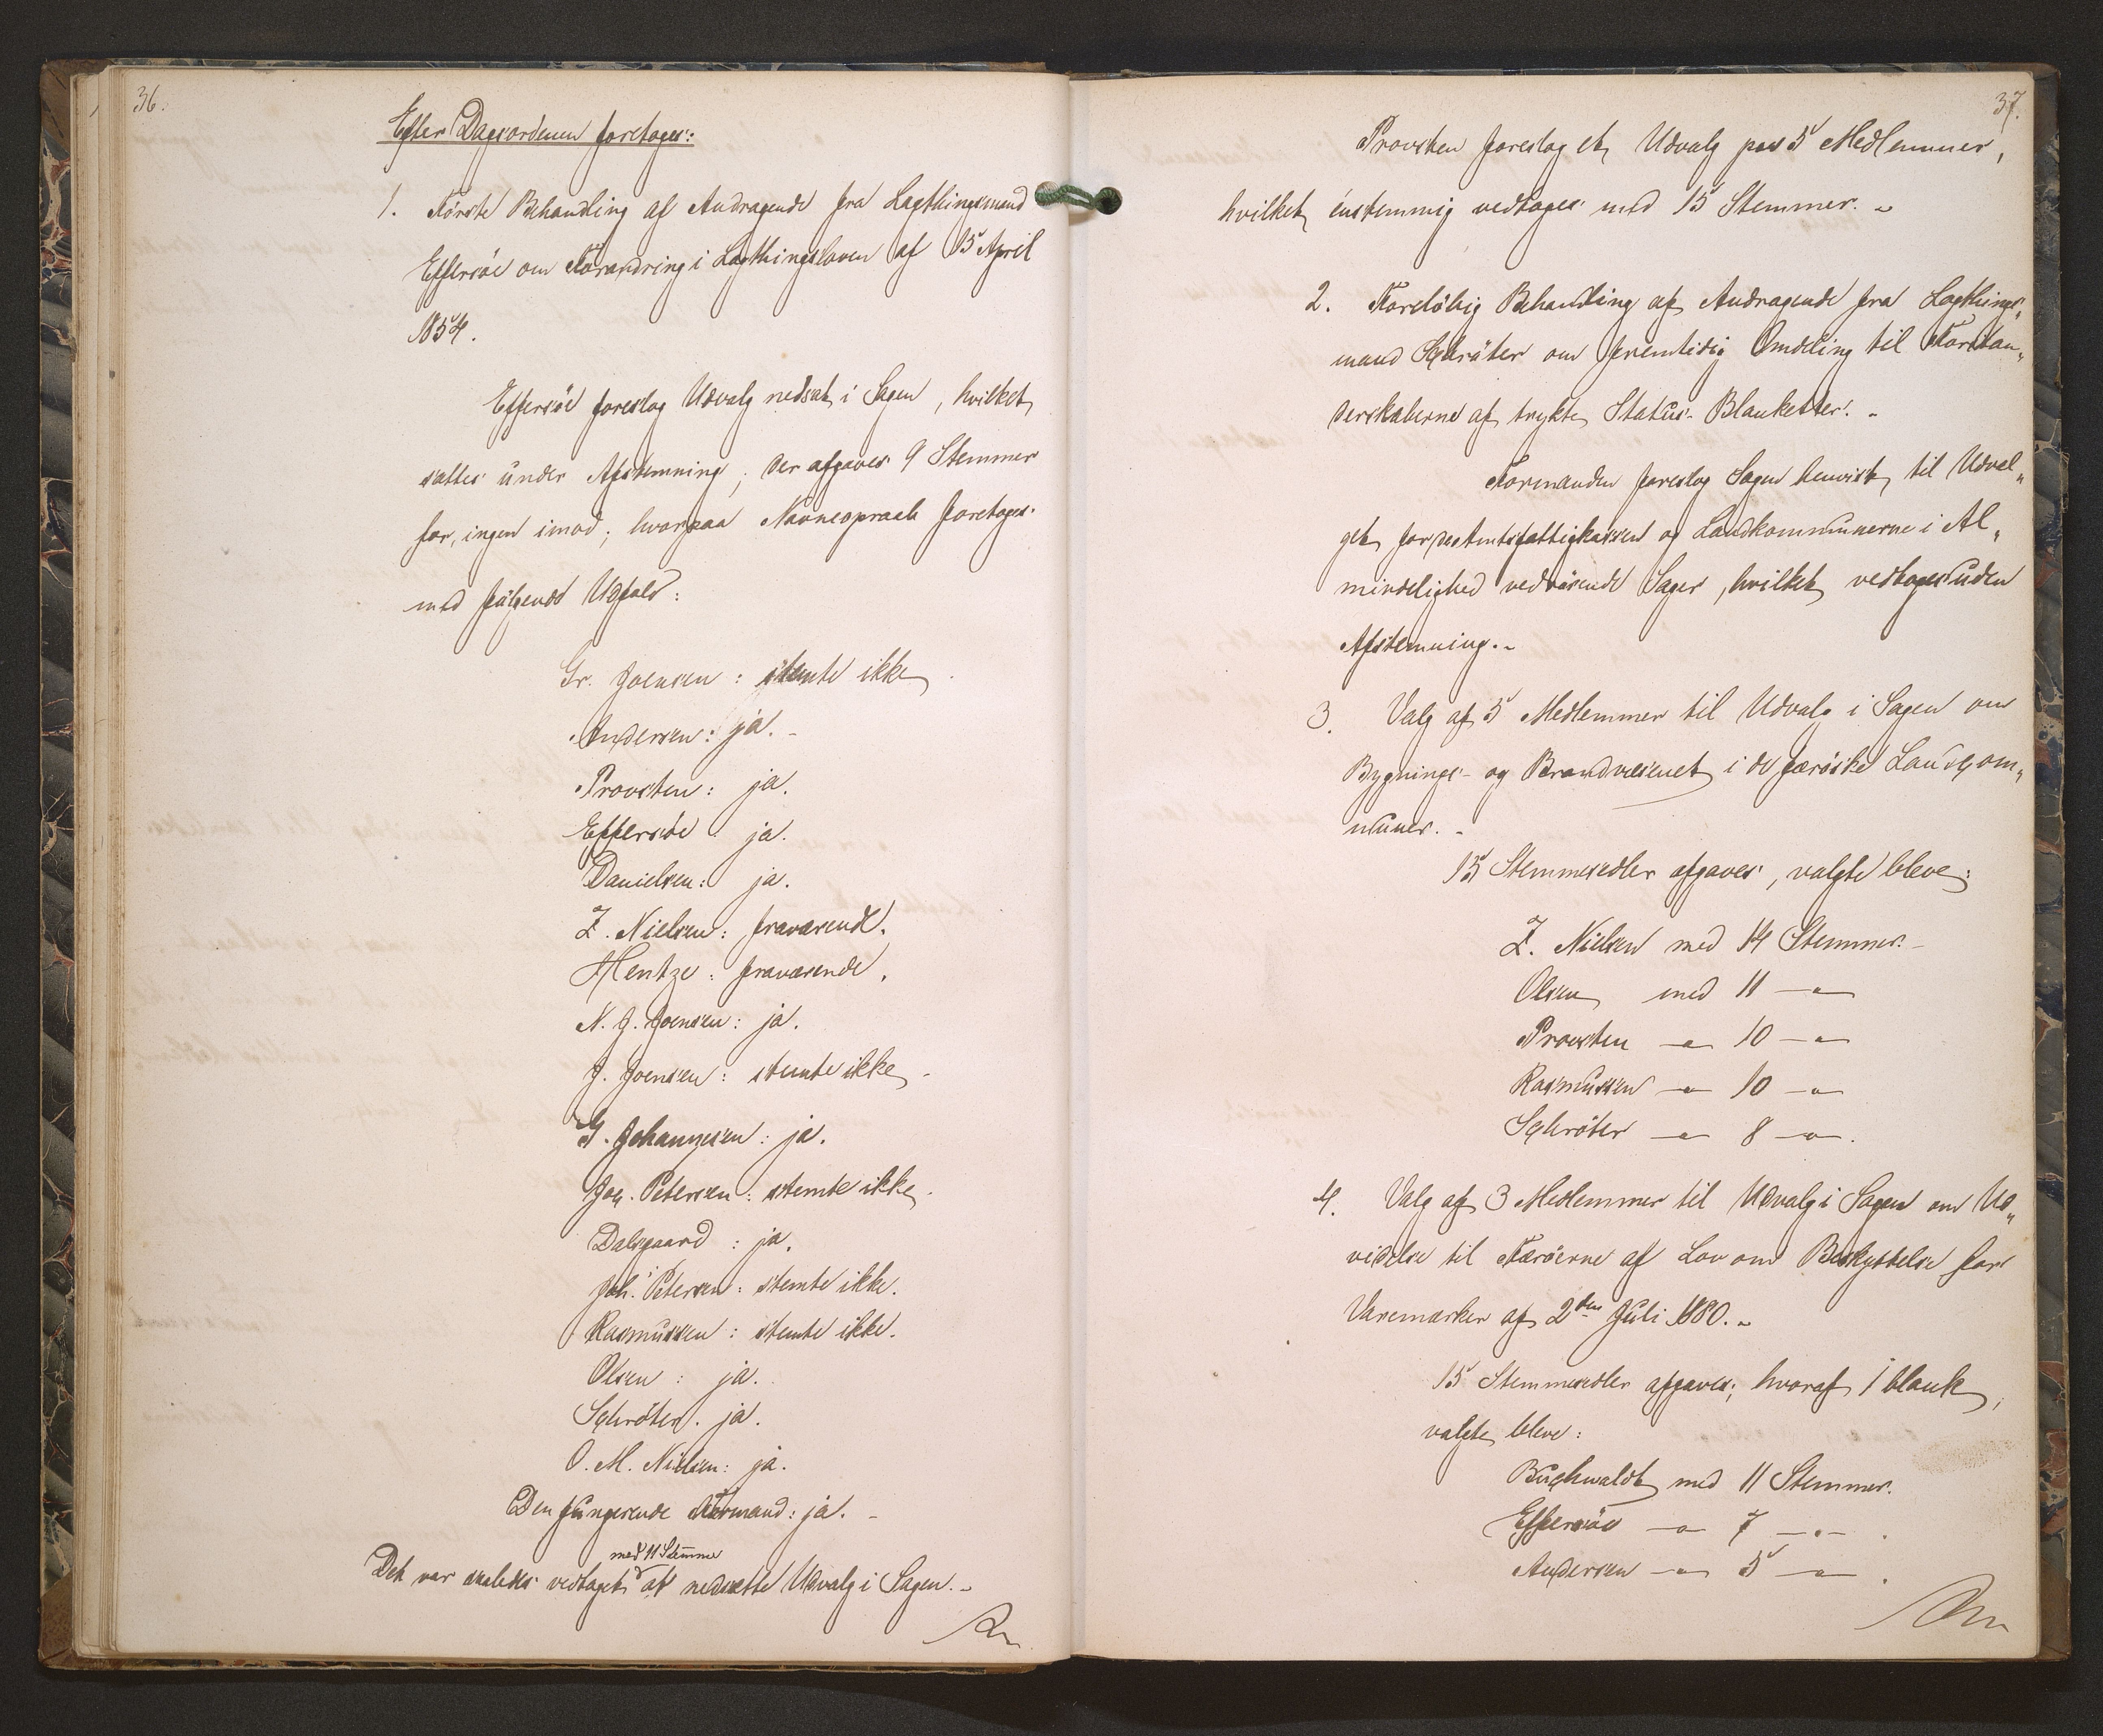 36.
Efter Dagsordenen foretoges:
1. Første Behandling af Andragende fra Lagthingsmand
Effersøe om Forandring i Lagthingsloven af 15 April
1854.
Effersøe foreslog Udvalg nedsat i Sagen, hvilket
sattes under Afstemning; der afgaves 9 Stemmer
for, ingen imod; hvorpaa Navneopraab foretoges
med følgende Udfald:
Gr. Joensen: stemte ikke.
Andersen: ja. -
Provsten: ja.
Effersøe: ja.
Danielsen: ja.
Z. Nielsen: fraværende.
Hentze: fraværende.
N. J. Joensen: ja.
J. Joensen: stemte ikke -
G. Johannesen: ja.
Joh. Petersen: stemte ikke.
Dalsgaard: ja.
Joh. Petersen: stemte ikke.
Rasmussen: stemte ikke.
Olsen: ja.
Schrøter. ja.
O. M. Nielsen: ja.
Den fungerende Formand: ja. -
med 11 Stemmer
Det var saaledes vedtaget at nedsætte Udvalg i Sagen. -
37.
Provsten foreslog et Udvalg paa 5 Medlemmer,
hvilket enstemmig vedtoges med 15 Stemmer. -
2. Foreløbig Behandling af Andragende fra Lagthings„
mand Schrøter om fremtidig Omdeling til Forstan„
derskaberne af trykte Status-Blanketter. -
Formanden foreslog Sagen henvist til Udval„
get for de Amtsfattigkassen og Landkommunerne i Al„
mindelighed vedrørende Sager, hvilket vedtoges uden
Afstemning. -
3. Valg af 5 Medlemmer til Udvalg i Sagen om
Bygnings- og Brandvæsenet i de færøske Landcom„
muner. -
15 Stemmesedler afgaves, valgte bleve:
Z. Nielsen med 14 Stemmer. -
Olsen med 11 —"—
Provsten —"— 10 —"—
Rasmussen —"— 10 —"—
Schrøter —"— 8 —"—.
4. Valg af 3 Medlemmer til Udvalg i Sagen om Ud„
videlse til Færøerne af Lov om Beskyttelse for
Varemærker af 2den Juli 1880. -
15 Stemmesedler afgaves; hvoraf 1 blank,
valgte bleve:
Buchwaldt med 11 Stemmer.
Effersøe —"— 7 —"—.
Andersen —"— 5 —"—.